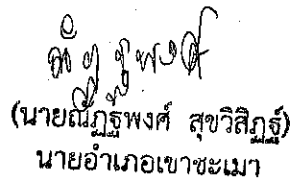 ณัฏฐพงศ์
(นายณัฏฐพงศ์ สุขวิสิฏฐ์)
นายอำเภอเขาชะเมา